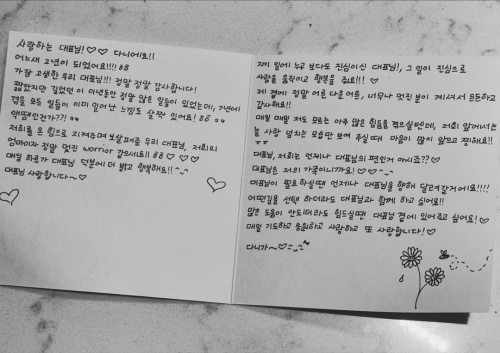 사랑하는 대표님!♡♡ 다니에요!!
어느새 2년이 되었어요!!!! 88
가장 고생한 우리 대표님!!! 정말 정말 감사합니다!
짧았지만 길었던 이 이년동안 정말 많은 일들이 있었는데, 7년에
겪을 모든 일들이 이미 일어난 느낌도 살짝 있어요! 88
액땜인건가??!
저희를 온 힘으로 지켜주며 보살펴주는 우리 대표님, 저희의
엄마이자 정말 멋진 worrior 같으세요!! 88 ♡♡♡
매일 하루가 대표님 덕분에 더 밝고 행복해요!! ^_^
대표님 사랑합니다~♡
자기 일에 누구 보다도 진심이신 대표님!, 그 일이 진심으로
사람을 움직이고 행복을 줘요!!! ♡
제 곁에 정말 어른 다운 어른, 너무나 멋진 분이 계셔서 든든하고
감사해요!!
매일 매일 저도 모르는 아주 많은 힘듦을 겪으실텐데, 저희 앞에서는
늘 사랑 넘치는 모습만 보여 주실때 마음이 많이 아프고 찡해요!!
대표님, 저희는 언제나 대표님의 편인거 아시죠??♡
대표님은 저의 가족이니까요! ♡♡
대표님이 필요하실땐 언제나 대표님을 향해 달려갈거에요!!!!
어떤길을 선택 하더라도 대표님과 함께 하고 싶어요!!
많은 도움이 안되더라도 힘드실때 대표님 곁에 있어주고 싶어요!
매일 기도하고 응원하고 사랑하고 또 사랑합니다!♡
다니가~♡